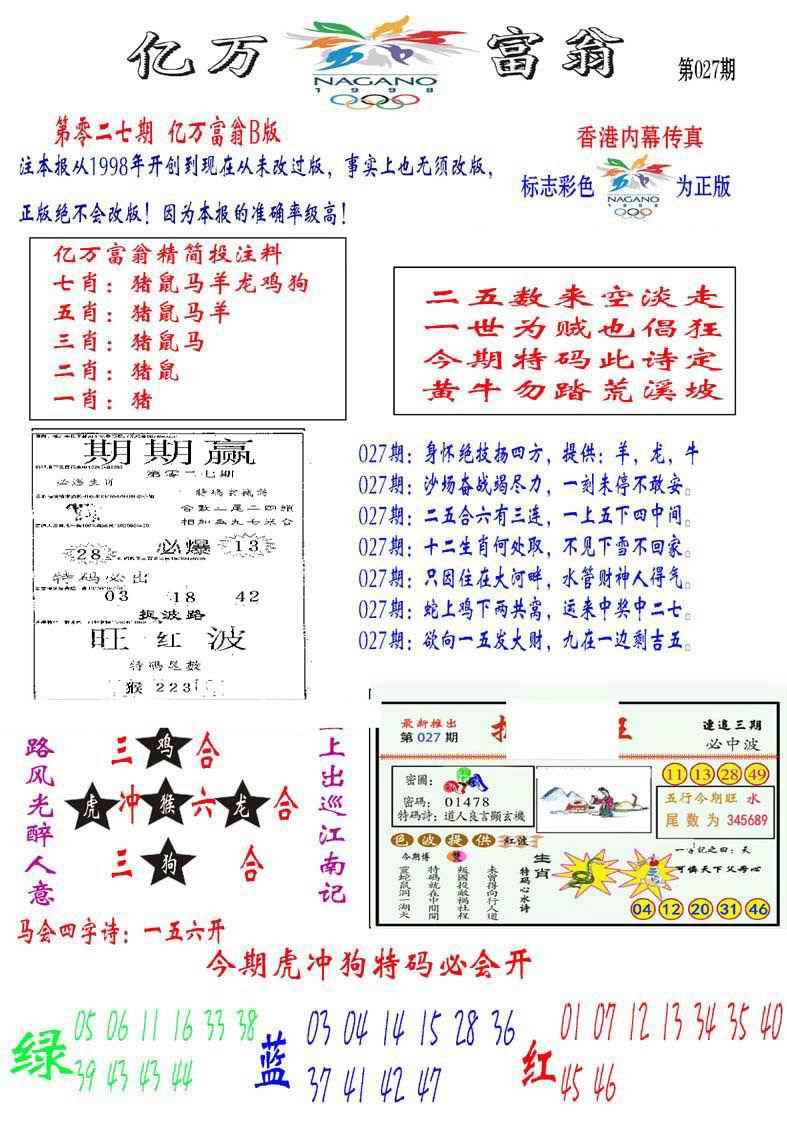 亿万富翁
NAGANO
1998
第027期
第零二七期 亿万富翁B版
香港内幕传真
注本报从1998年开创到现在从未改过版，事实上也无须改版，
标志彩色
NAGANO
1998
为正版
正版绝不会改版！因为本报的准确率级高！
亿万富翁精简投注料
七肖：猪鼠马羊龙鸡狗
五肖：猪鼠马羊
三肖：猪鼠马
二肖：猪鼠
一肖：猪
二五数来空淡走
一世为贼也倡狂
今期特码此诗定
黄牛勿踏荒溪坡
期期赢
第零二七期
必选生肖
合数二尾二四组
相加五九七来合
28
必爆
13
特码必出
03 18 42
捉波路
旺红波
特码尾数
猴 2231
027期：身怀绝技扬四方，提供：羊，龙，牛
027期：沙场奋战竭尽力，一刻未停不敢安。
027期：二五合六有三连，一上五下四中间。
027期：十二生肖何处取，不见下雪不回家。
027期：只因住在大河畔，水管财神人得气。
027期：蛇上鸡下两共窝，运来中奖中二七。
027期：欲向一五发大财，九在一边剩吉五。
路风光醉人意
三 鸡 合
虎 冲 猴 六 龙 合
三 狗 合
上出巡江南记
马会四字诗：一五六开
最新推出
第 027 期
連追三期
必中波
密圖：
密碼： 01478
特碼詩：道人良言顯玄機
11 13 28 49
五行今期旺 水
尾数为 345689
色波提供 红波
今期博 雙
靈蛇鼠洞一湖天
特碼就在中間開
叛國投敵禍社程
未曾得向行人道
特碼心水诗
生肖
可憐天下父母心
04 12 20 31 46
今期虎冲狗特码必会开
绿
05 06 11 16 33 38
39 43 43 44
蓝
03 04 14 15 28 36
37 41 42 47
红
01 07 12 13 34 35 40
45 46